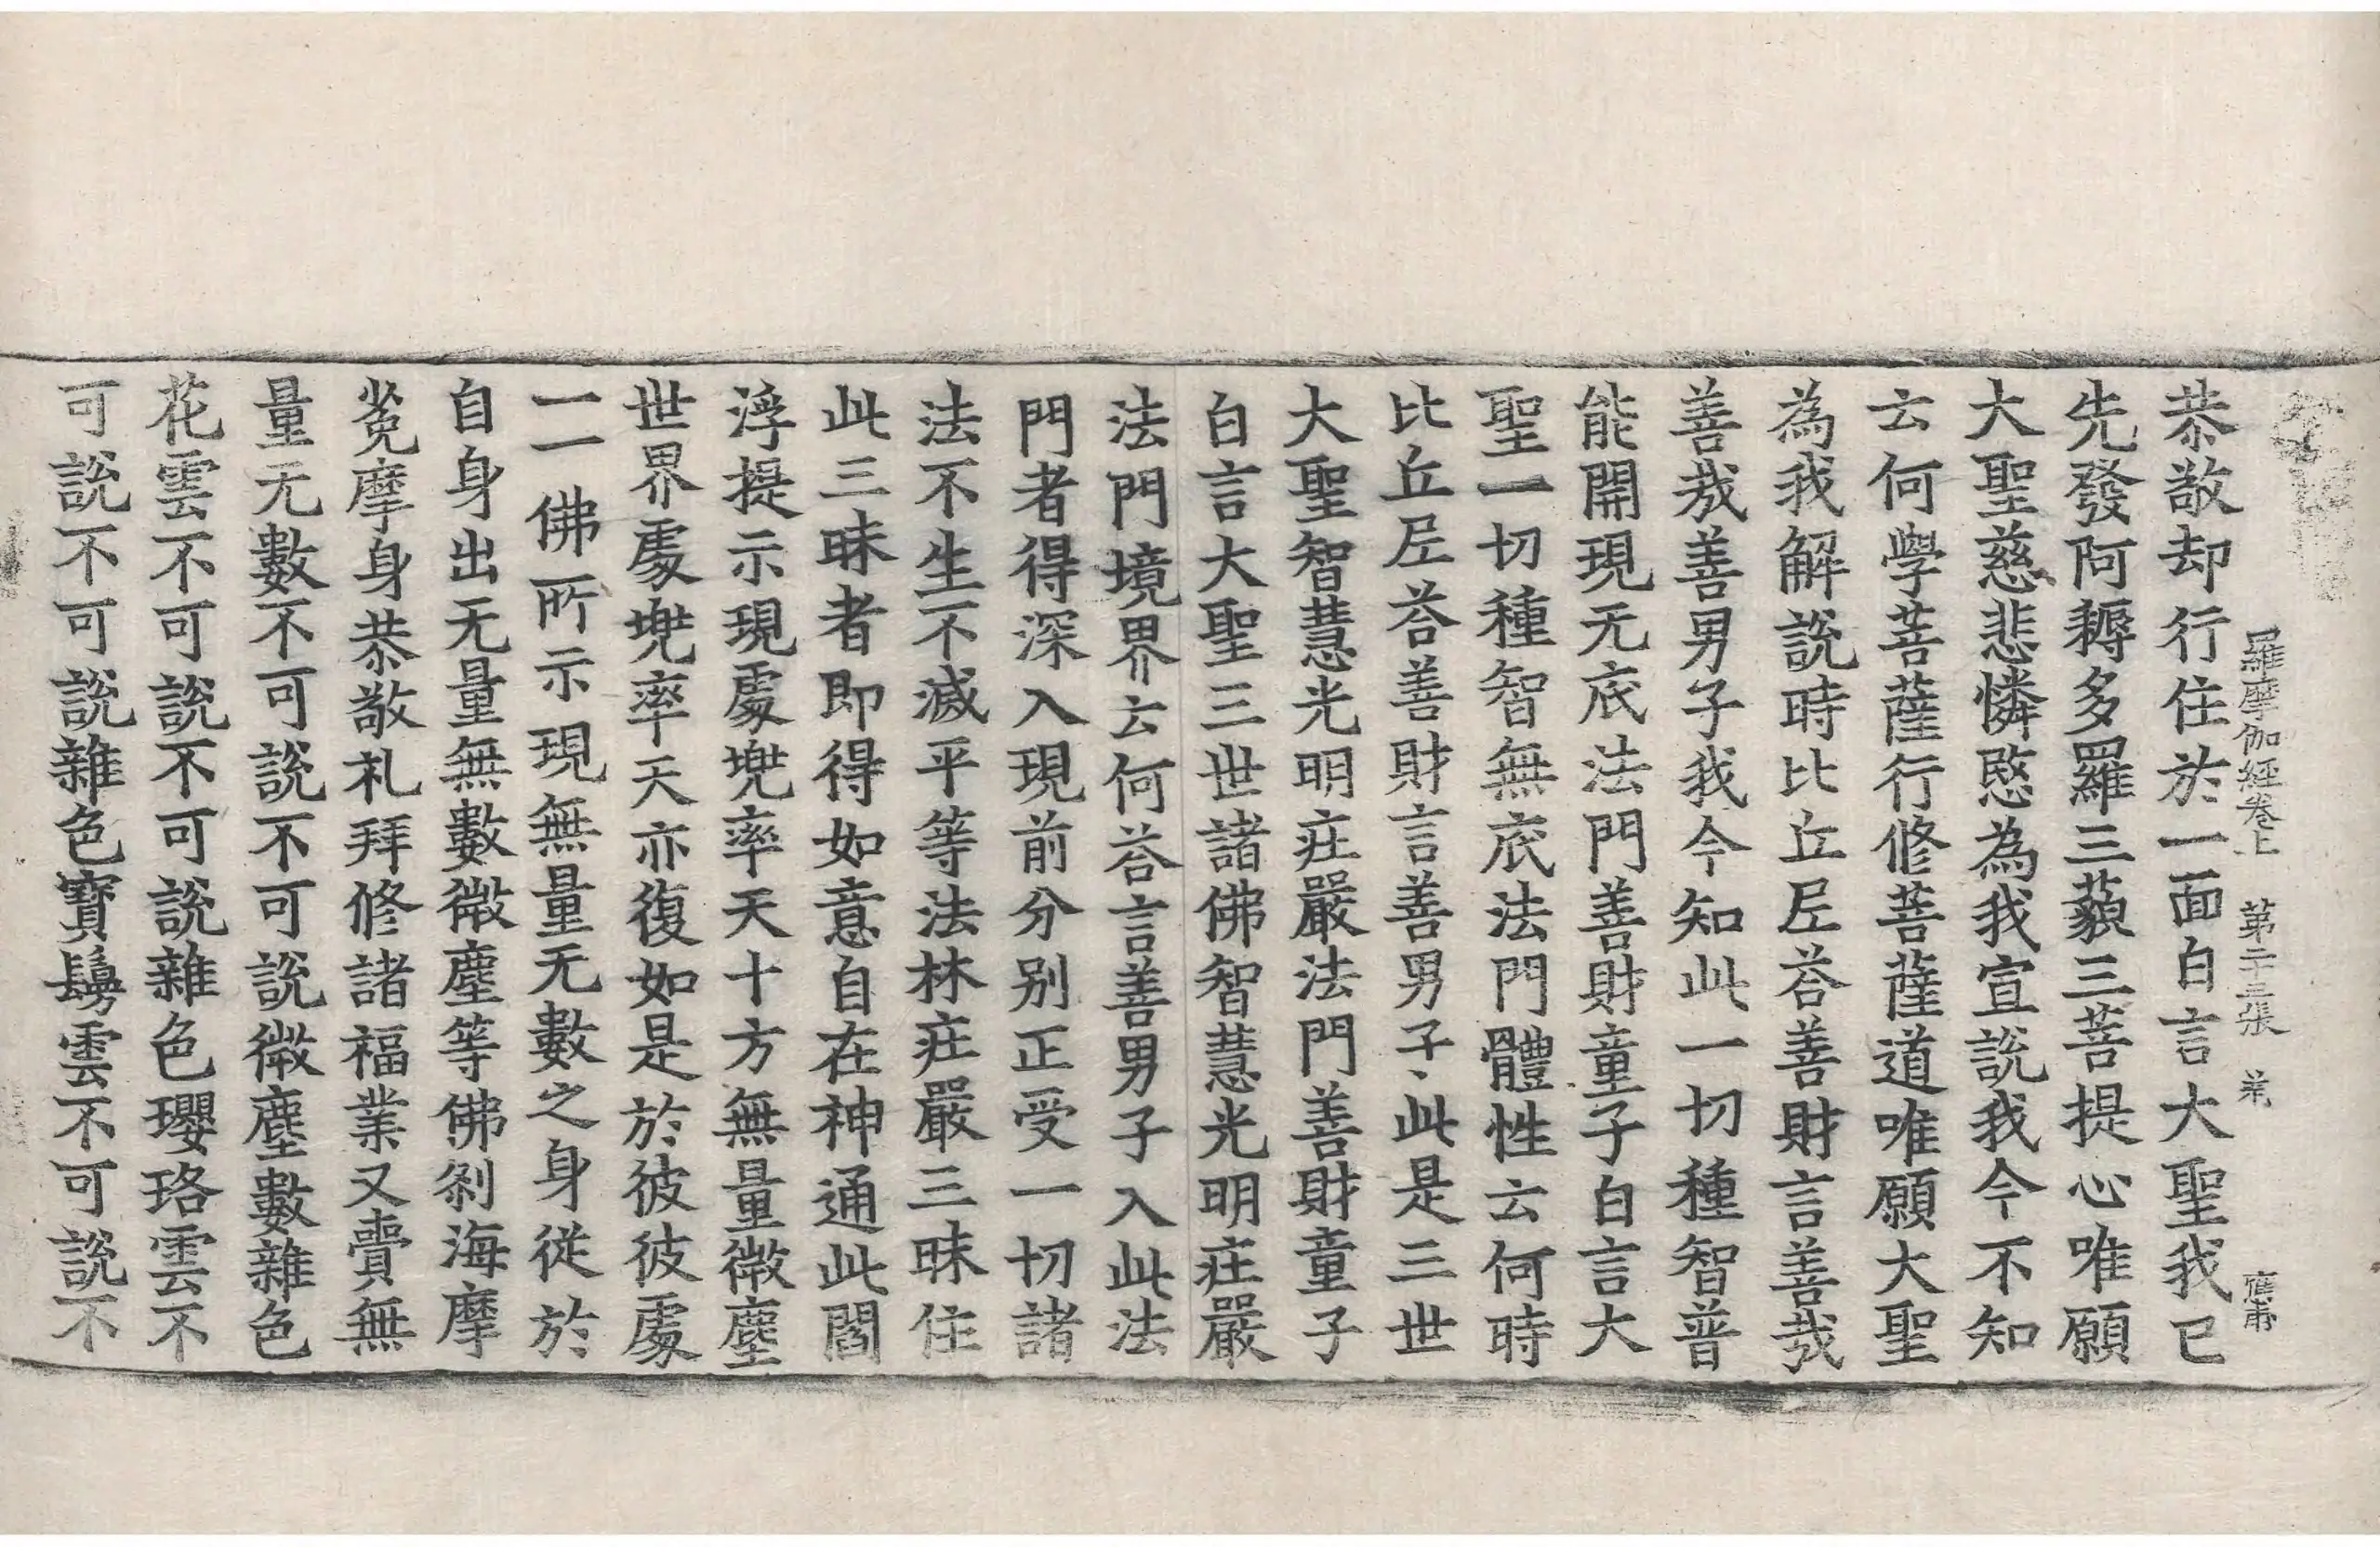 羅摩伽經卷上 第二十三張 業 應甫
恭敬却行住於一面白言大聖我已
先發阿耨多羅三藐三菩提心唯願
大聖慈悲憐愍為我宣說我今不知
云何學菩薩行修菩薩道唯願大聖
為我解說時比丘尼荅善財言善哉
善哉善男子我今知此一切種智普
能開現无底法門善財童子白言大
聖一切種智無底法門體性云何時
比丘尼荅善財言善男子此是三世
大聖智慧光明庄嚴法門善財童子
白言大聖三世諸佛智慧光明庄嚴
法門境界云何荅言善男子入此法
門者得深入現前分別正受一切諸
法不生不滅平等法林庄嚴三昧住
此三昧者即得如意自在神通此閻
浮提示現處兠率天十方無量微塵
世界處兠率天亦復如是於彼彼處
一一佛所示現無量无數之身從於
自身出无量無數微塵等佛刹海摩
㝹摩身恭敬礼拜修諸福業又賷無
量无數不可說不可說微塵數雜色
花雲不可說不可說雜色瓔珞雲不
可說不可說雜色寶鬘雲不可說不